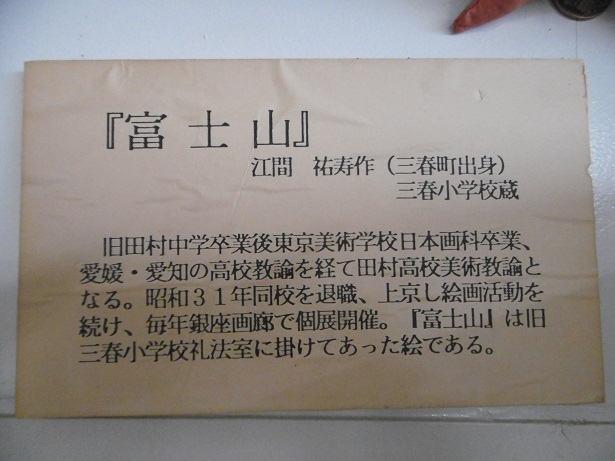 『富士山』
江間　祐寿作（三春町出身）
三春小学校蔵
旧田村中学卒業後東京美術学校日本画科卒業、
愛媛・愛知の高校教諭を経て田村高校美術教諭と
なる。昭和３１年同校を退職、上京し絵画活動を
続け、毎年銀座画廊で個展開催。『富士山』は旧
三春小学校礼法室に掛けてあった絵である。